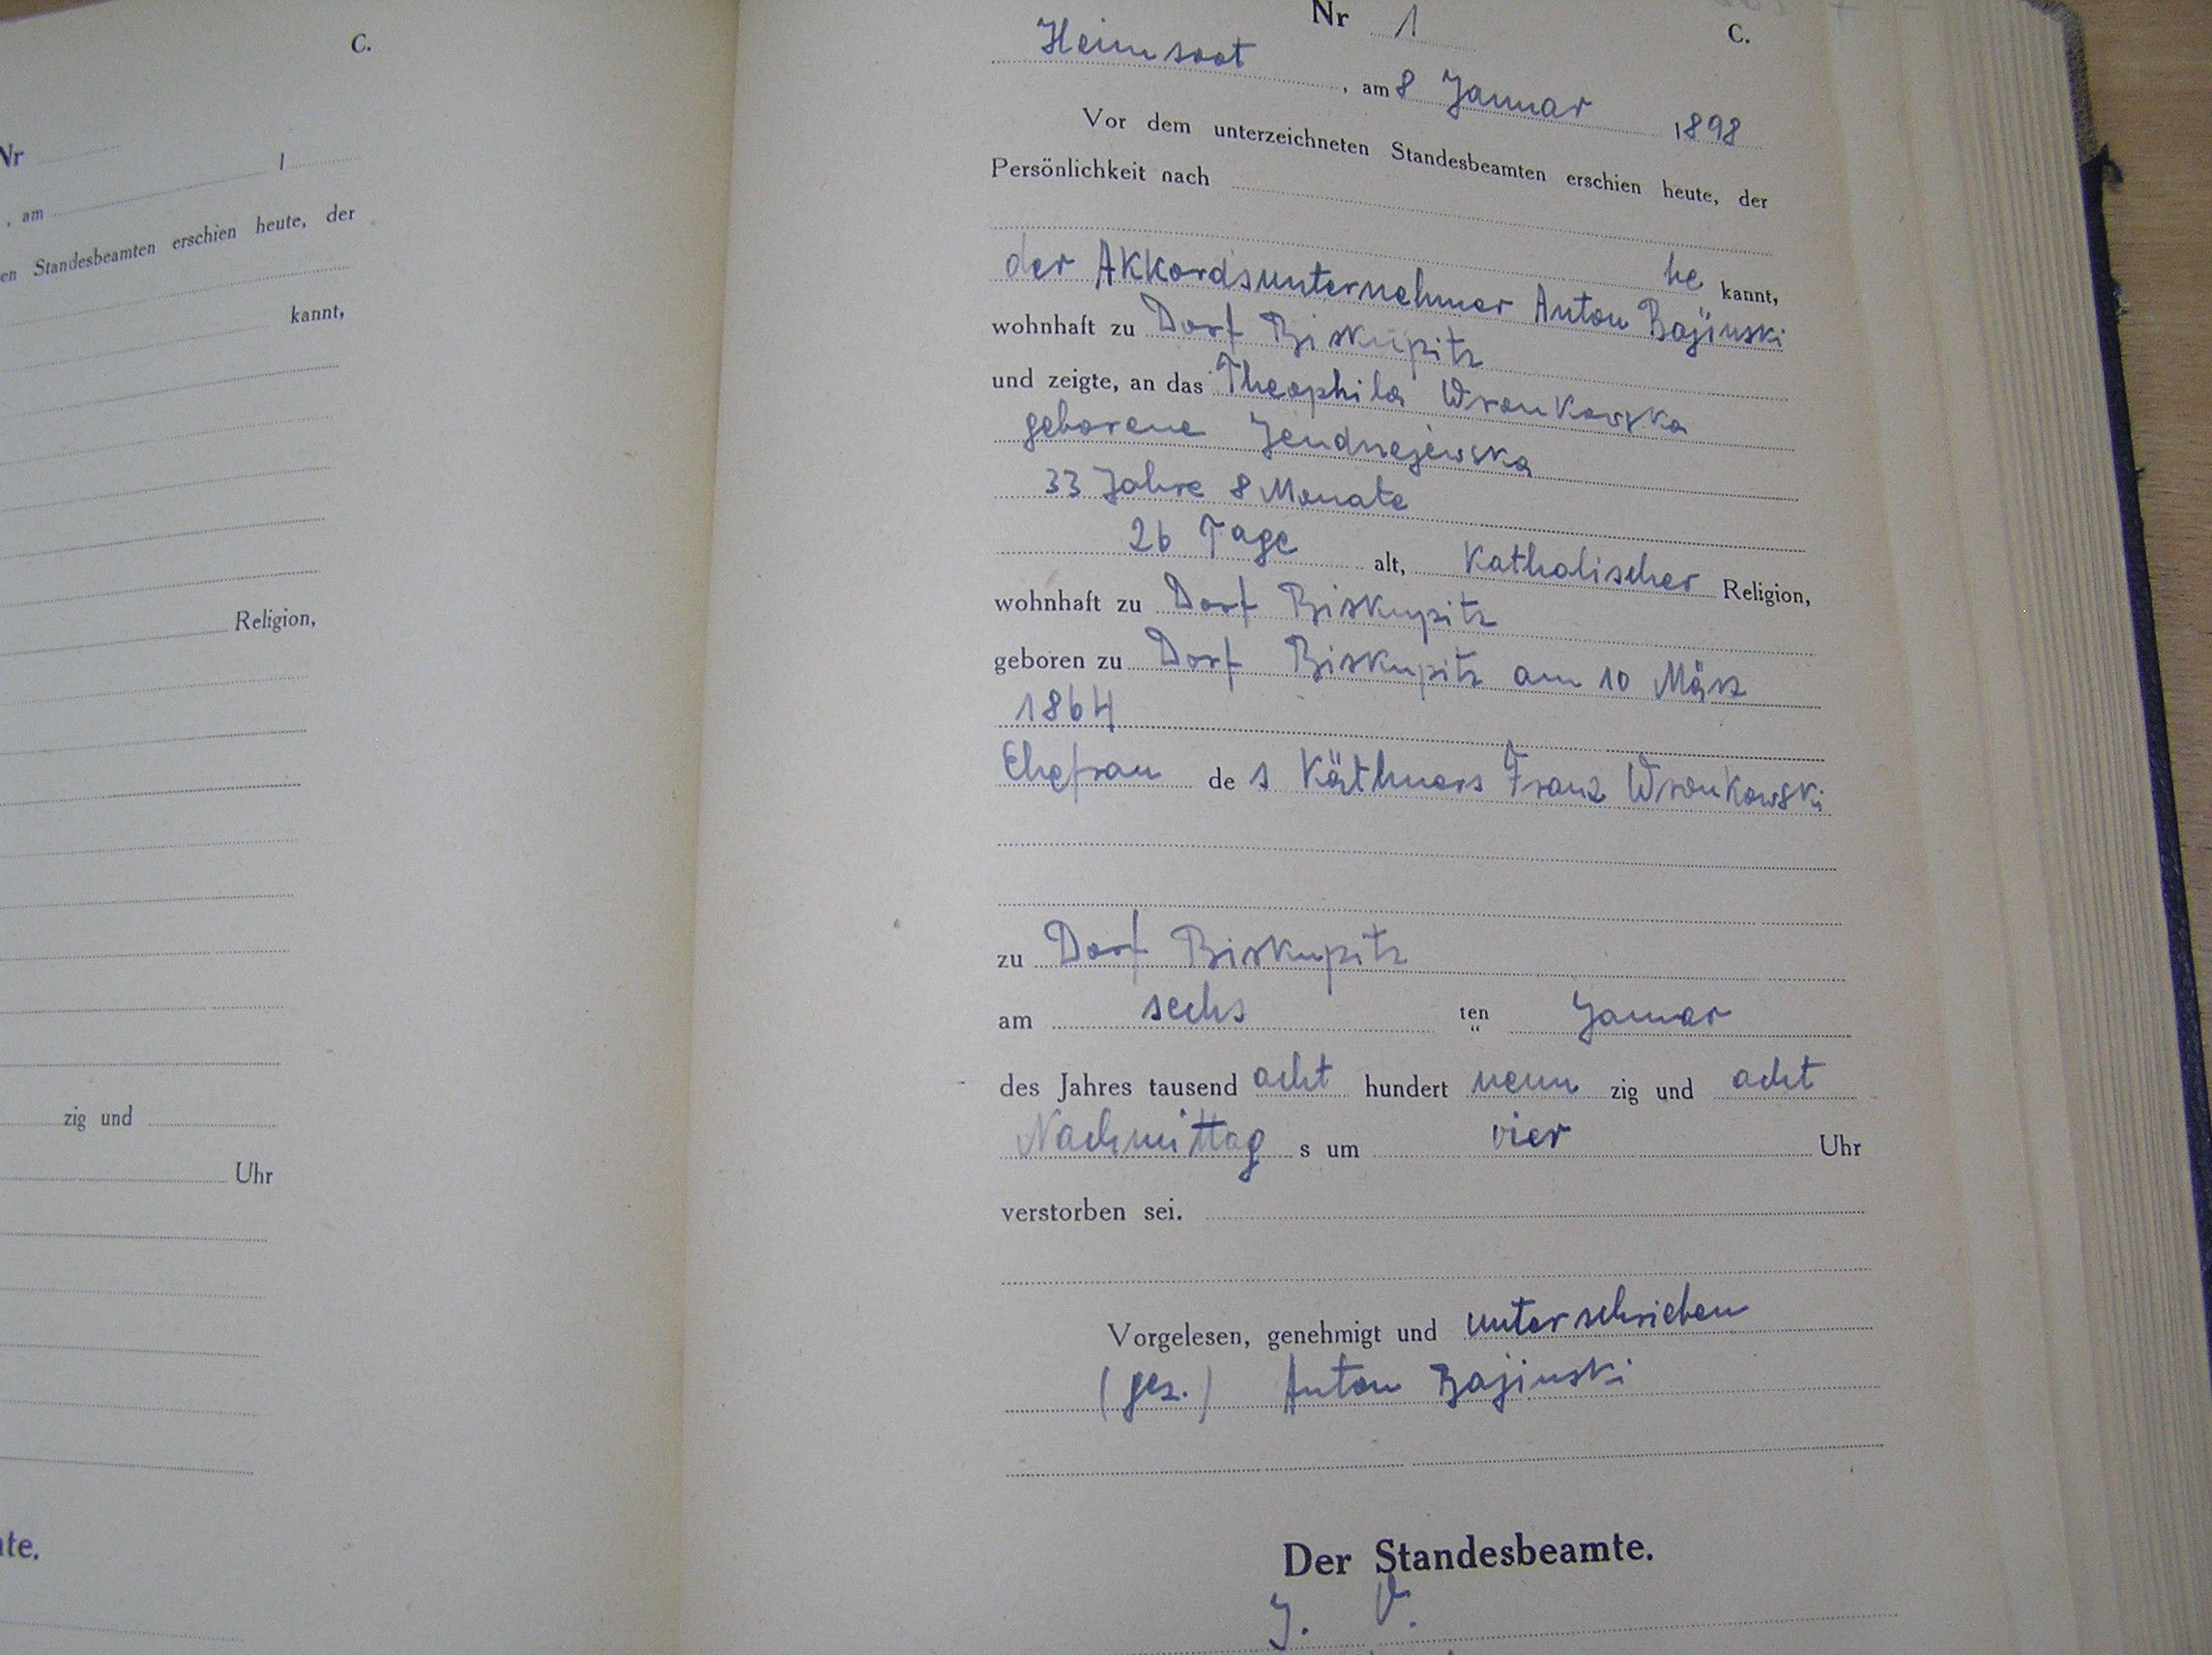 C.
Nr
1
, am
en Standesbeamten erschien heute, der
kannt,
Religion,
zig und
Uhr
te.
Nr 1
C.
Heimsoot
, am 8 Januar 1898
Vor dem unterzeichneten Standesbeamten erschien heute, der
Persönlichkeit nach
he kannt,
der Akkordsunternehmer Anton Bajinski
wohnhaft zu Dorf Biskupitz
und zeigte, an das Theophila Wronkowska
geborene Jendnejewska
33 Jahre 8 Monate
26 Tage alt, Katholischer Religion,
wohnhaft zu Dorf Biskupitz
geboren zu Dorf Biskupitz am 10 März
1864
Ehefrau de s Käthners Franz Wronkowski
zu Dorf Biskupitz
am sechs ten Januar
"
des Jahres tausend acht hundert neun zig und acht
Nachmittag s um vier Uhr
verstorben sei.
Vorgelesen, genehmigt und unterschrieben
(gez.) Anton Bajinski
Der Standesbeamte.
J. V.